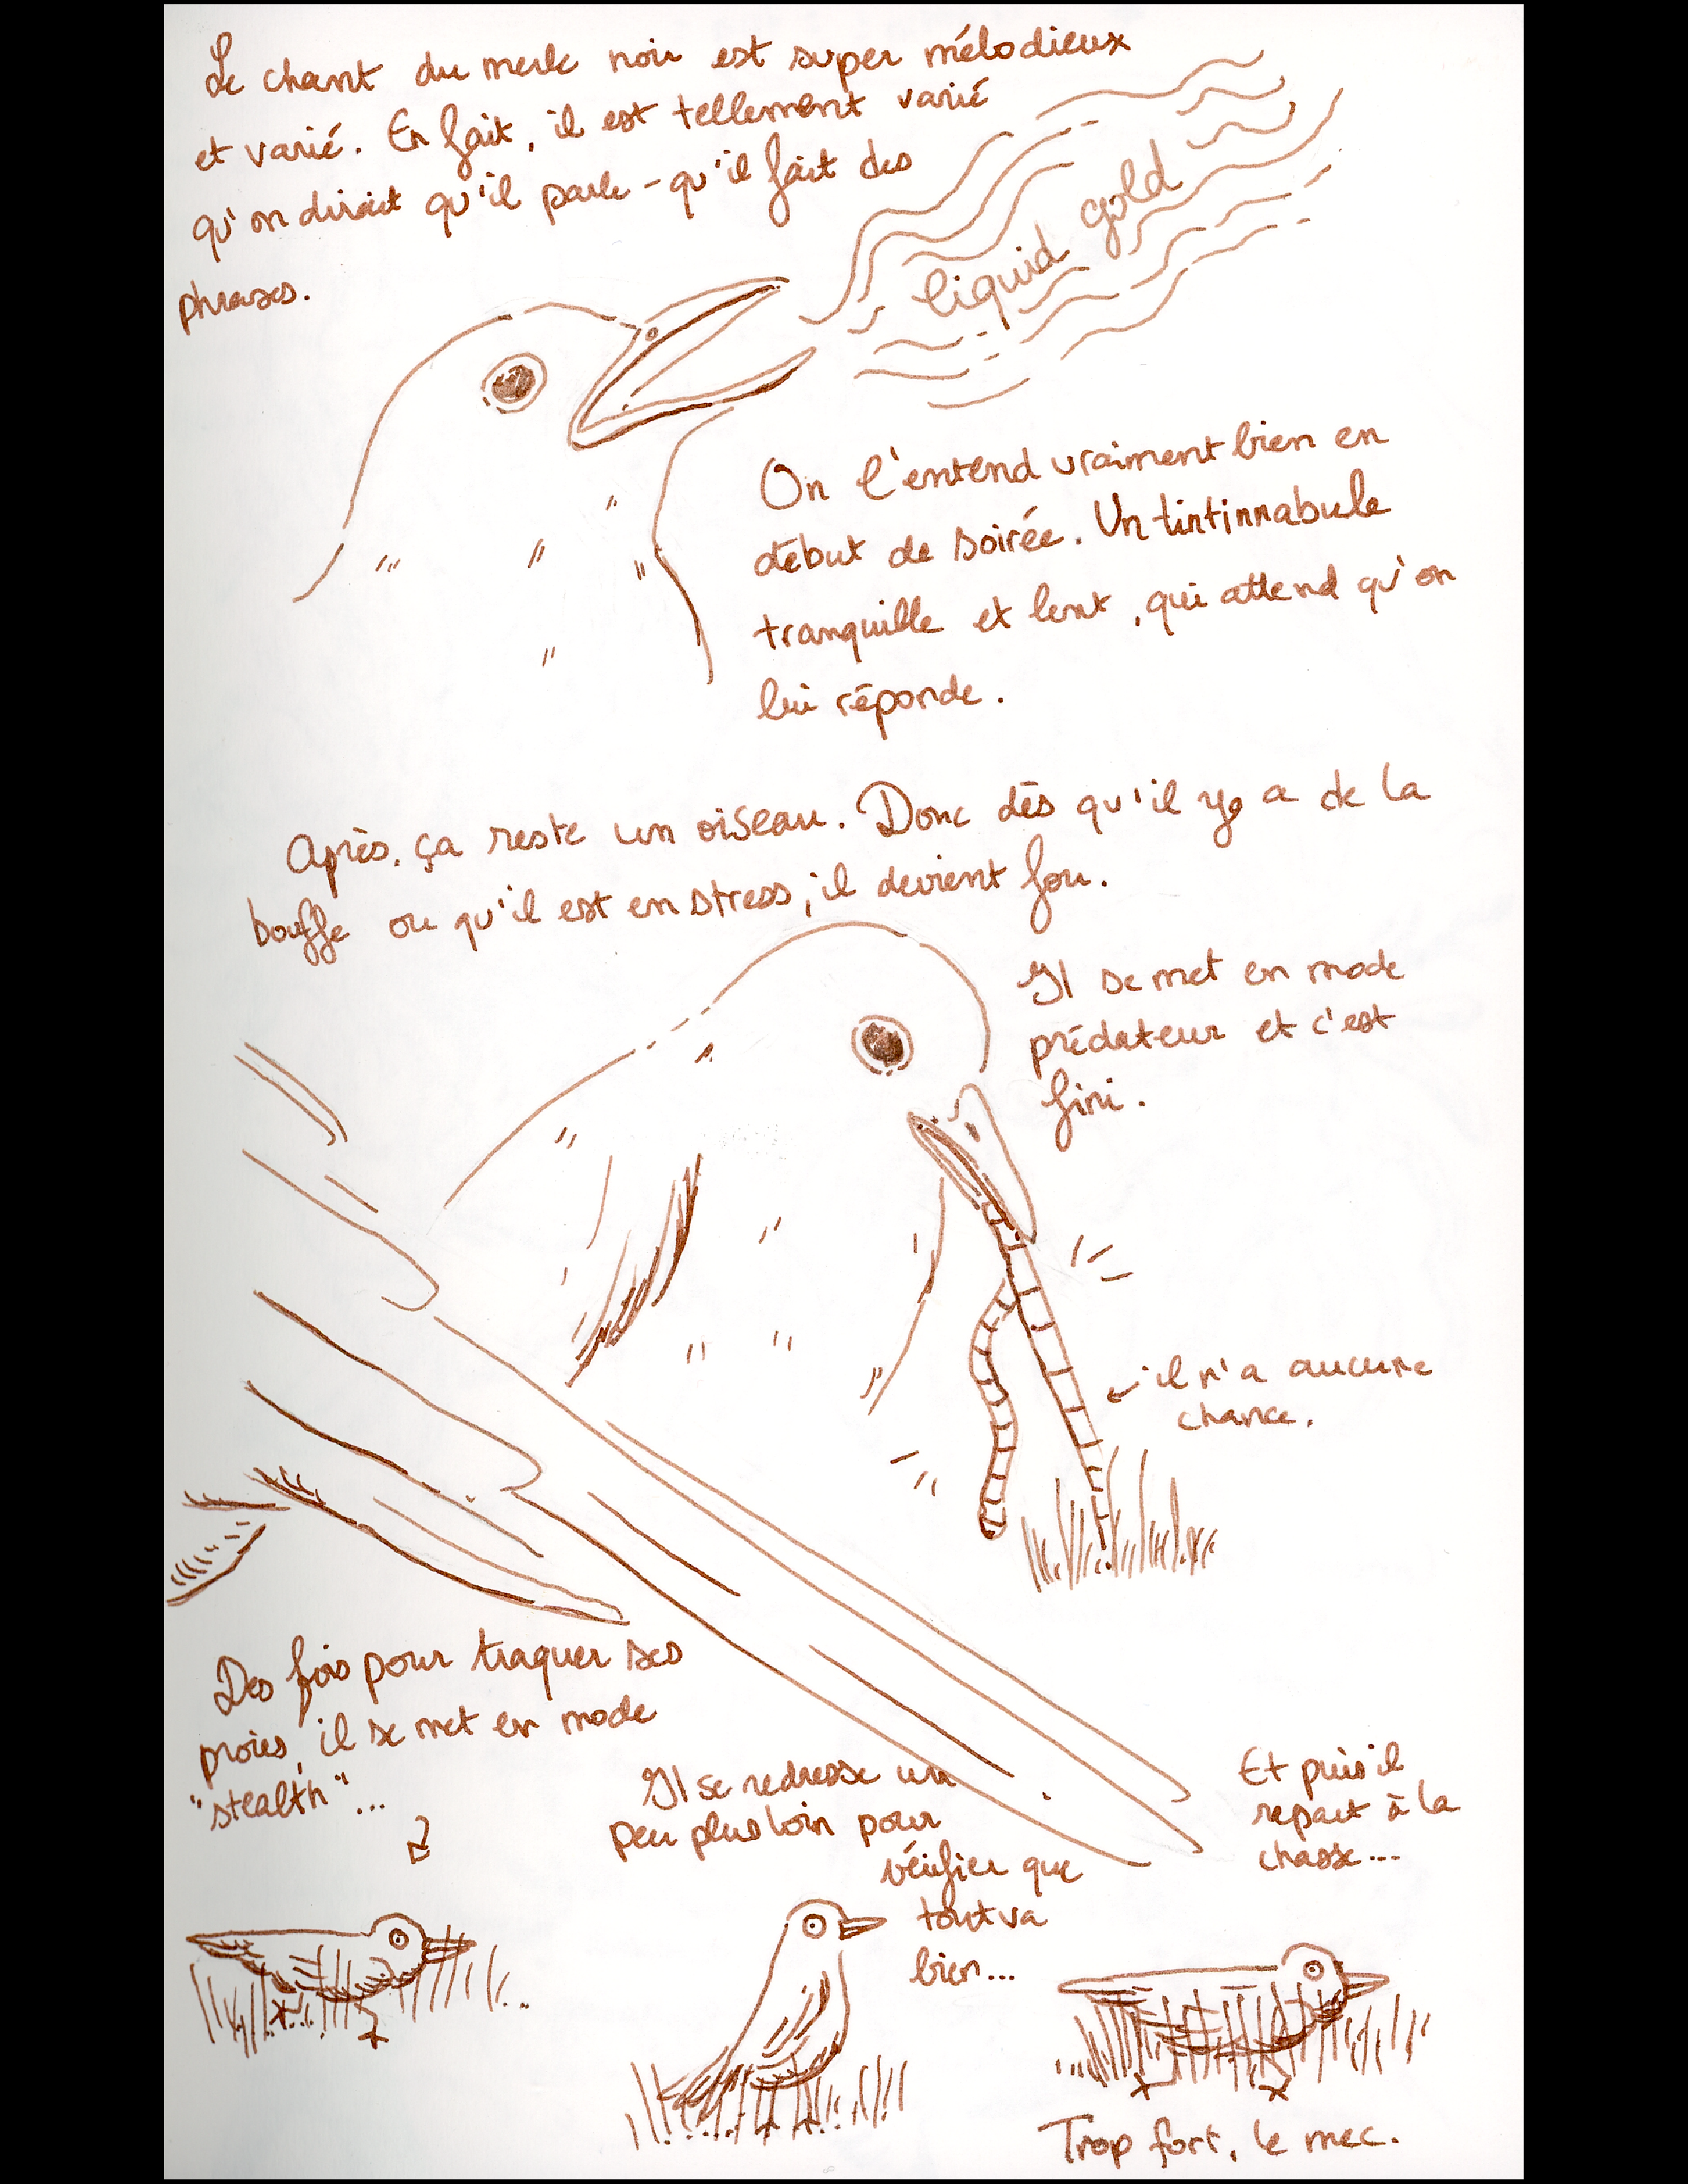 Le chant du merle noir est super mélodieux
et varié. En fait, il est tellement varié
qu'on dirait qu'il parle - qu'il fait des
phrases.
liquid gold
On l'entend vraiment bien en
début de soirée. Un tintinnabule
tranquille et lent, qui attend qu'on
lui réponde.
Après, ça reste un oiseau. Donc dès qu'il y a de la
bouffe ou qu'il est en stress, il devient fou.
Il se met en mode
prédateur et c'est
fini.
il n'a aucune
chance.
Des fois pour traquer ses
proies, il se met en mode
"stealth"...
Il se redresse un
peu plus loin pour
vérifier que
tout va
bien...
Et puis il
repart à la
chasse...
Trop fort, le mec.